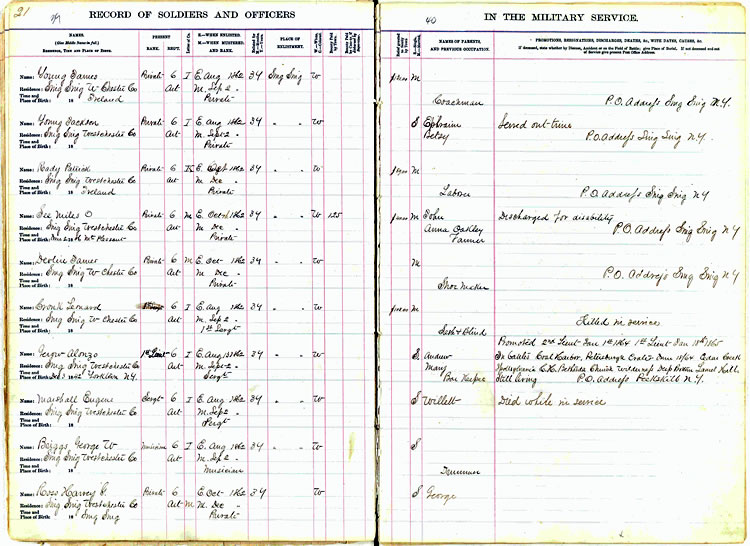 21
RECORD OF SOLDIERS AND OFFICERS
NAMES
(Give Middle Name in full.)
RESIDENCE, TIME AND PLACE OF BIRTH.
PRESENT
RANK. REGT.
Letter of Co.
E.—WHEN ENLISTED.
M.—WHEN MUSTERED,
AND RANK.
PLACE OF
ENLISTMENT.
Name: Young James Private 6 I E. Aug 1862 3 y Sing Sing W
Residence: Sing Sing W Chester Co Art M. Sep 2 "
Time and Place of Birth: 18 Ireland Private
Name: Young Jackson Private 6 I E. Aug 1862 3 y " " W
Residence: Sing Sing Westchester Co Art M. Sep 2 "
Time and Place of Birth: 18 Private
Name: Rady Patrick Private 6 K E. 1862 3 y " " W
Residence: Sing Sing Westchester Co Art M. Dec "
Time and Place of Birth: 18 Ireland Private
Name: See Miles O Private 6 M E. Oct 1862 3 y " " W 125
Residence: Sing Sing Westchester Co Art M. Dec "
Time and Place of Birth: Mt Pleasant Private
Name: James Private 6 M E. Oct 1862 3 y " " W
Residence: Sing Sing W Chester Co Art M. Dec "
Time and Place of Birth: 18 Private
Name: Cronk Leonard 6 I E. Aug 1862 3 y " " W
Residence: Sing Sing W Chester Co Art M. Sep 2 "
Time and Place of Birth: 18 1st Sergt
Name: Gerow Alonzo 1st Lieut 6 I E. Aug 1862 3 y " " W
Residence: Sing Sing Westchester Co Art M. Sep 2 "
Time and Place of Birth: 1842 Yorktown N.Y. Sergt
Name: Marshall Eugene Sergt 6 I E. Aug 1862 3 y " " W
Residence: Sing Sing Westchester Co Art M. Sep 2 "
Time and Place of Birth: 18 Sergt
Name: Briggs George W Musician 6 I E. Aug 1862 3 y " " W
Residence: Sing Sing Westchester Co Art M. Sep 2 "
Time and Place of Birth: 18 Musician
Name: Ross Harvey P. Private 6 E. Oct 1862 3 y W
Residence: Sing Sing Westchester Co Art M M. Dec "
Time and Place of Birth: 18 Sing Sing Private
40
IN THE MILITARY SERVICE.
NAMES OF PARENTS,
AND PREVIOUS OCCUPATION.
PROMOTIONS, RESIGNATIONS, DISCHARGES, DEATHS, &c., WITH DATES, CAUSES, &c.
If deceased, state whether by Disease, Accident or on the Field of Battle; give Place of Burial. If not deceased and out of Service give present Post Office Address.
M
Coachman P.O. Address Sing Sing N.Y.
S Ephraim Served out time
Betsy P.O. Address Sing Sing N.Y.
M
Labor P.O. Address Sing Sing N Y
M John Discharged for disability
Anna Oakley P.O. Address Sing Sing N Y
Farmer
M
P.O. Address Sing Sing N Y
Shoe Maker
M
Killed in service
Sash & Blind
Promoted 2nd Lieut Jan 1st 1864 1st Lieut Jan 18th 1865
S Andrew Cold Harbor, Petersburgh Crater June 1864 Cedar Creek
Mary Spotsylvania C.H. Bethesda Church Wilderness Deep Bottom Laurel Hill
Book Keeper Still living P.O. Address Peekskill N.Y.
S Willett Died while in service
S
Drummer
S George